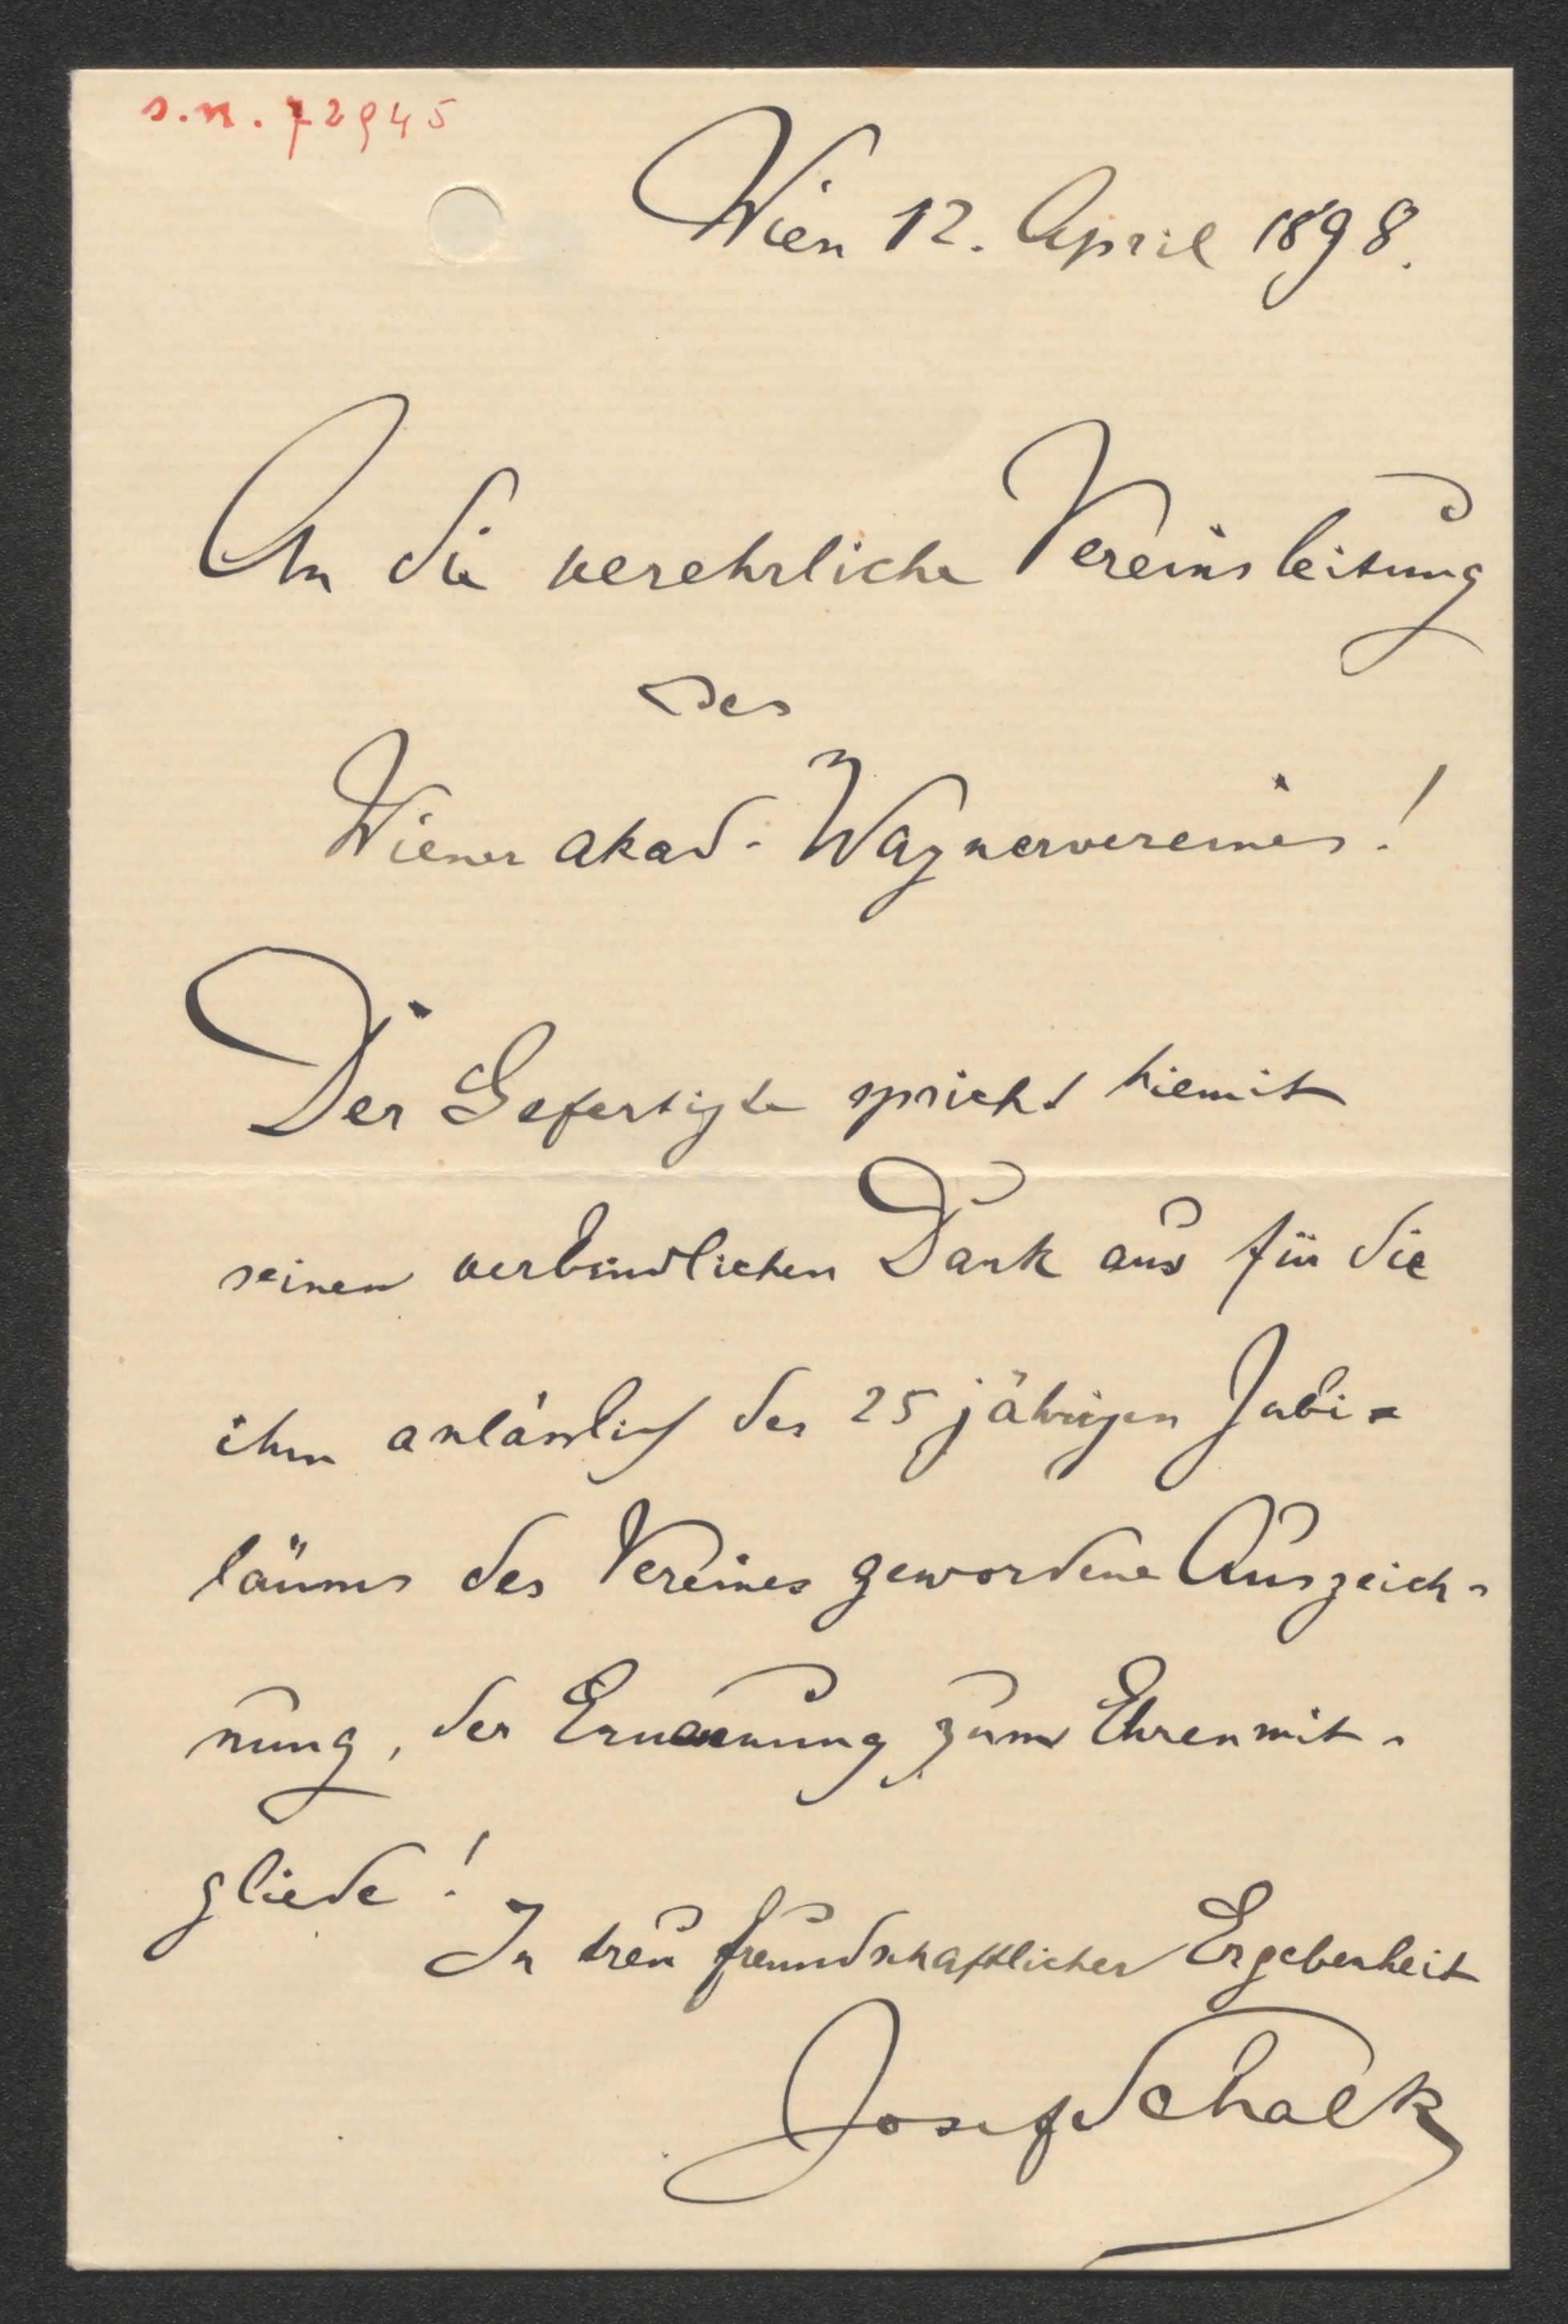 s.n. 72945
Wien 12. April 1898.
An die verehrliche Vereinsleitung
des
Wiener akad. Wagnervereines!
Der Gefertigte spricht hiemit
seinen verbindlichen Dank aus für die
ihm anlässlich des 25 jährigen Jubi=
läums des Vereines gewordene Auszeich-
nung, der Ernennung zum Ehrenmit-
gliede!
In treu freundschaftlicher Ergebenheit
Josef Schalk